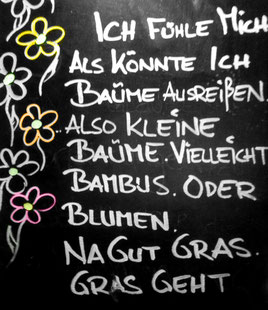 ICH FÜHLE MICH
ALS KÖNNTE ICH
BAÜME AUSREIßEN.
..ALSO KLEINE
BAÜME. VIELLEICHT
BAMBUS. ODER
BLUMEN.
NA GUT GRAS.
GRAS GEHT